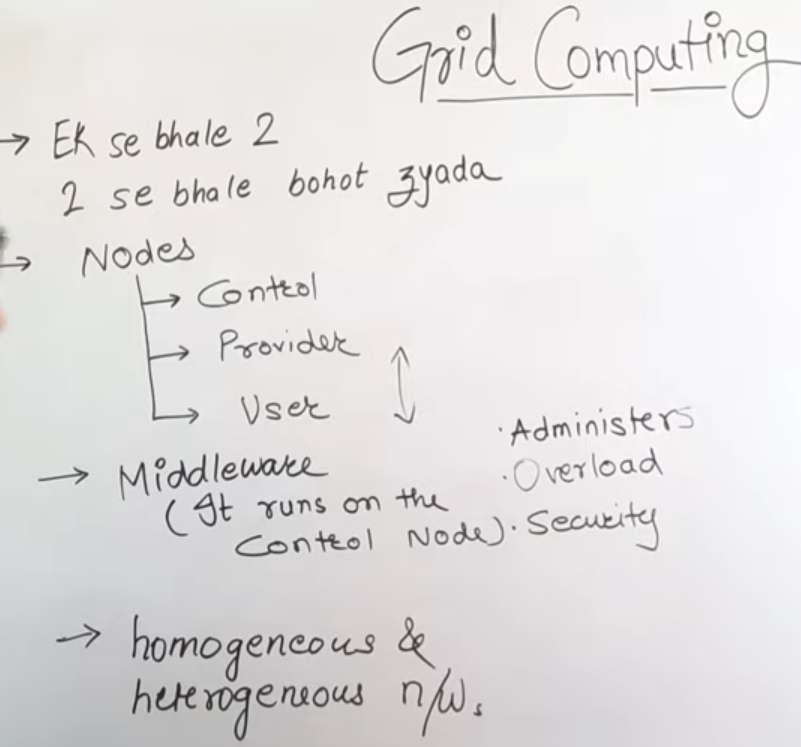 Grid Computing
→ Ek se bhale 2
2 se bhale bohot zyada
→ Nodes
→ Control
→ Provider
→ User
→ Middleware
(It runs on the
Control Node)
· Administers
· Overload
· Security
→ homogeneous &
heterogeneous n/ws